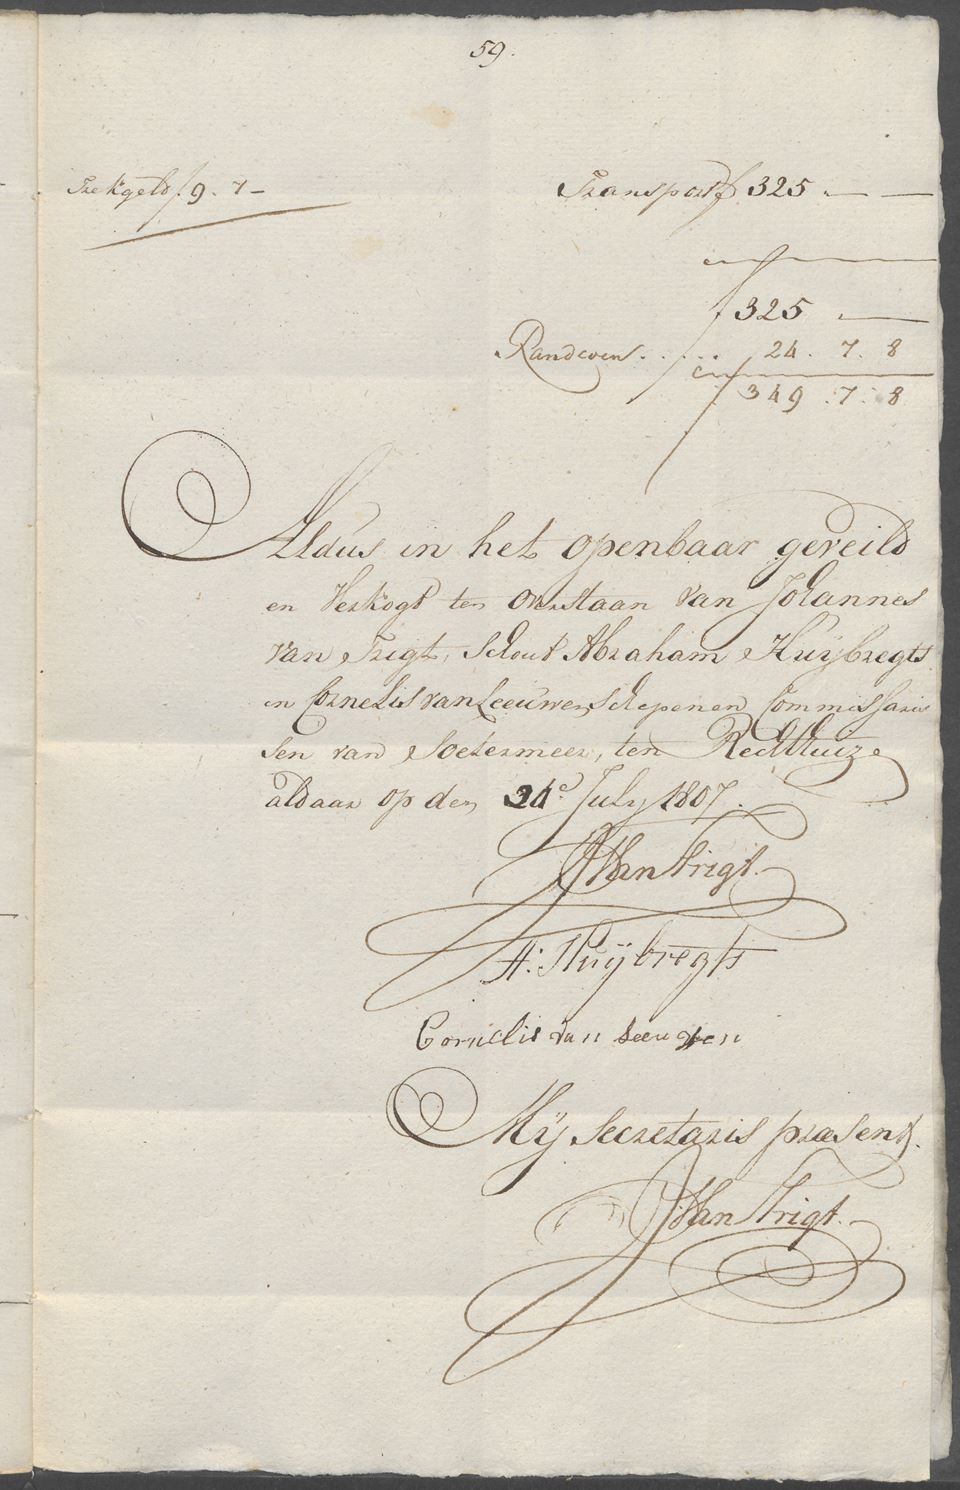 59.
Trekgeld f 9. 7 —
Transport f 325 . — —
f 325 . —
Randcoen . . . . . 24 . 7. 8
f 349 . 7. 8
Aldus in het openbaar geveild
en Verkogt ten overstaan van Johannes
van Trigt, Schout Abraham Huijbregts
en Cornelis van Leeuwen Schepenen Commissaris
sen van Soetermeer, ten Rechthuize
aldaar op den 24e. July 1807.
J Van Trigt.
A: Huijbregts
Cornelis van Leeuwen
Mij Secretaris præsent.
J Van Trigt.